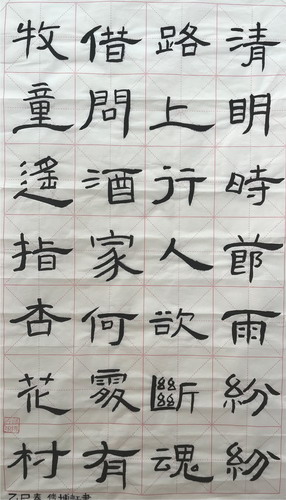 清明時節雨紛紛
路上行人欲斷魂
借問酒家何處有
牧童遙指杏花村
乙巳春